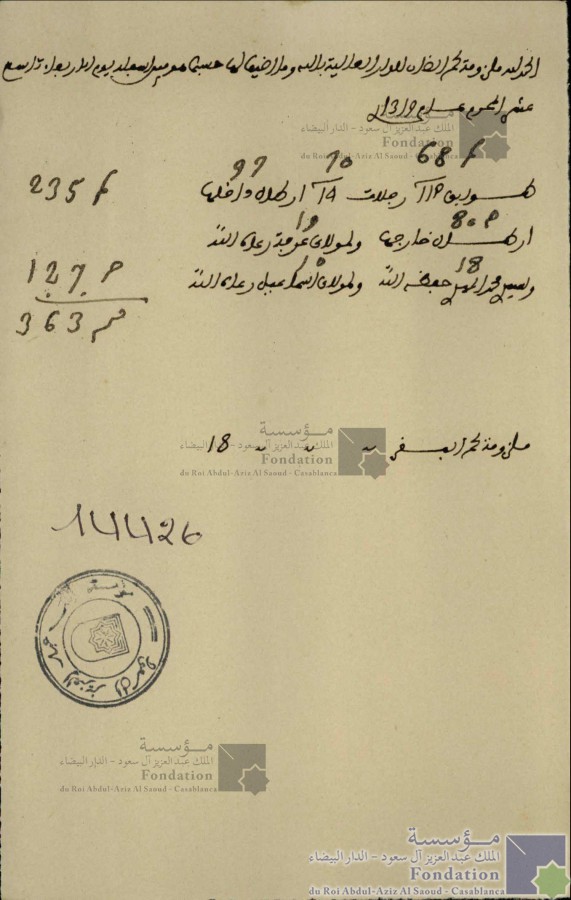 الحمد لله ملزومة لحم الضأن للدار العالية بالله وما اضيف لها حسبما هو مبين اسفله يوم الاربعاء تاسع
عشر المحرم عام 1319
97 70 68
235
ارطال وداخلها
80 19
ارطال خارجها ولمولاي عرفة رعاه الله
18 10
127
ولسيدي محمد حفظه الله ولمولاي اسماعيل رعاه الله
363
ملزومة لحم البقر 18
14426
مؤسسة
الملك عبد العزيز آل سعود - الدار البيضاء
Fondation
du Roi Abdul-Aziz Al Saoud - Casablanca
مؤسسة
الملك عبد العزيز آل سعود - الدار البيضاء
Fondation
du Roi Abdul-Aziz Al Saoud - Casablanca
مؤسسة
الملك عبد العزيز آل سعود - الدار البيضاء
Fondation
du Roi Abdul-Aziz Al Saoud - Casablanca
مؤسسة
الملك عبد العزيز آل سعود - الدار البيضاء
Fondation
du Roi Abdul-Aziz Al Saoud - Casablanca